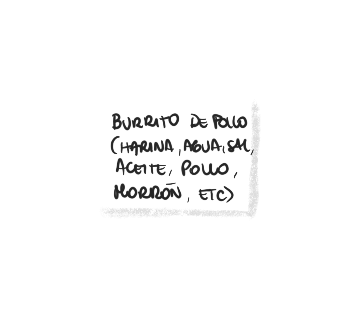 BURRITO DE POLLO
(HARINA, AGUA, SAL,
ACEITE, POLLO,
MORRÓN, ETC)